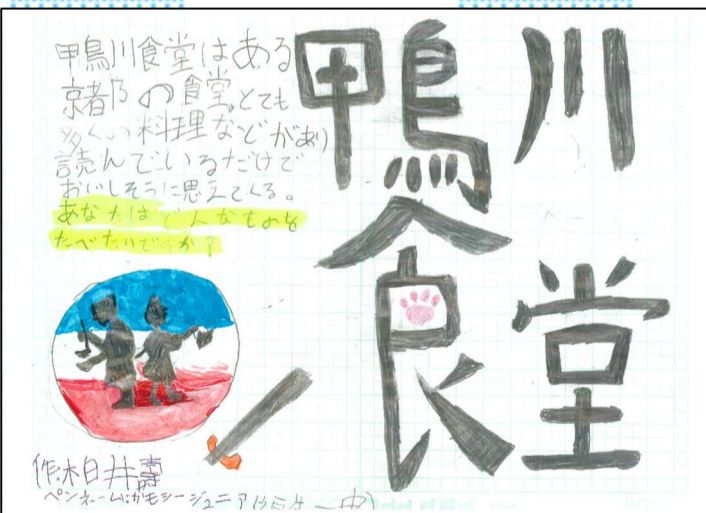 鴨川食堂
鴨川食堂はある
京都乃の食堂。とても
多くの料理などがあり
読んでいるだけで
おいしそうに思えてくる。
あなたはどんなものを
たべたいですか?
作:柏井壽
ペンネーム:かもシージュニア